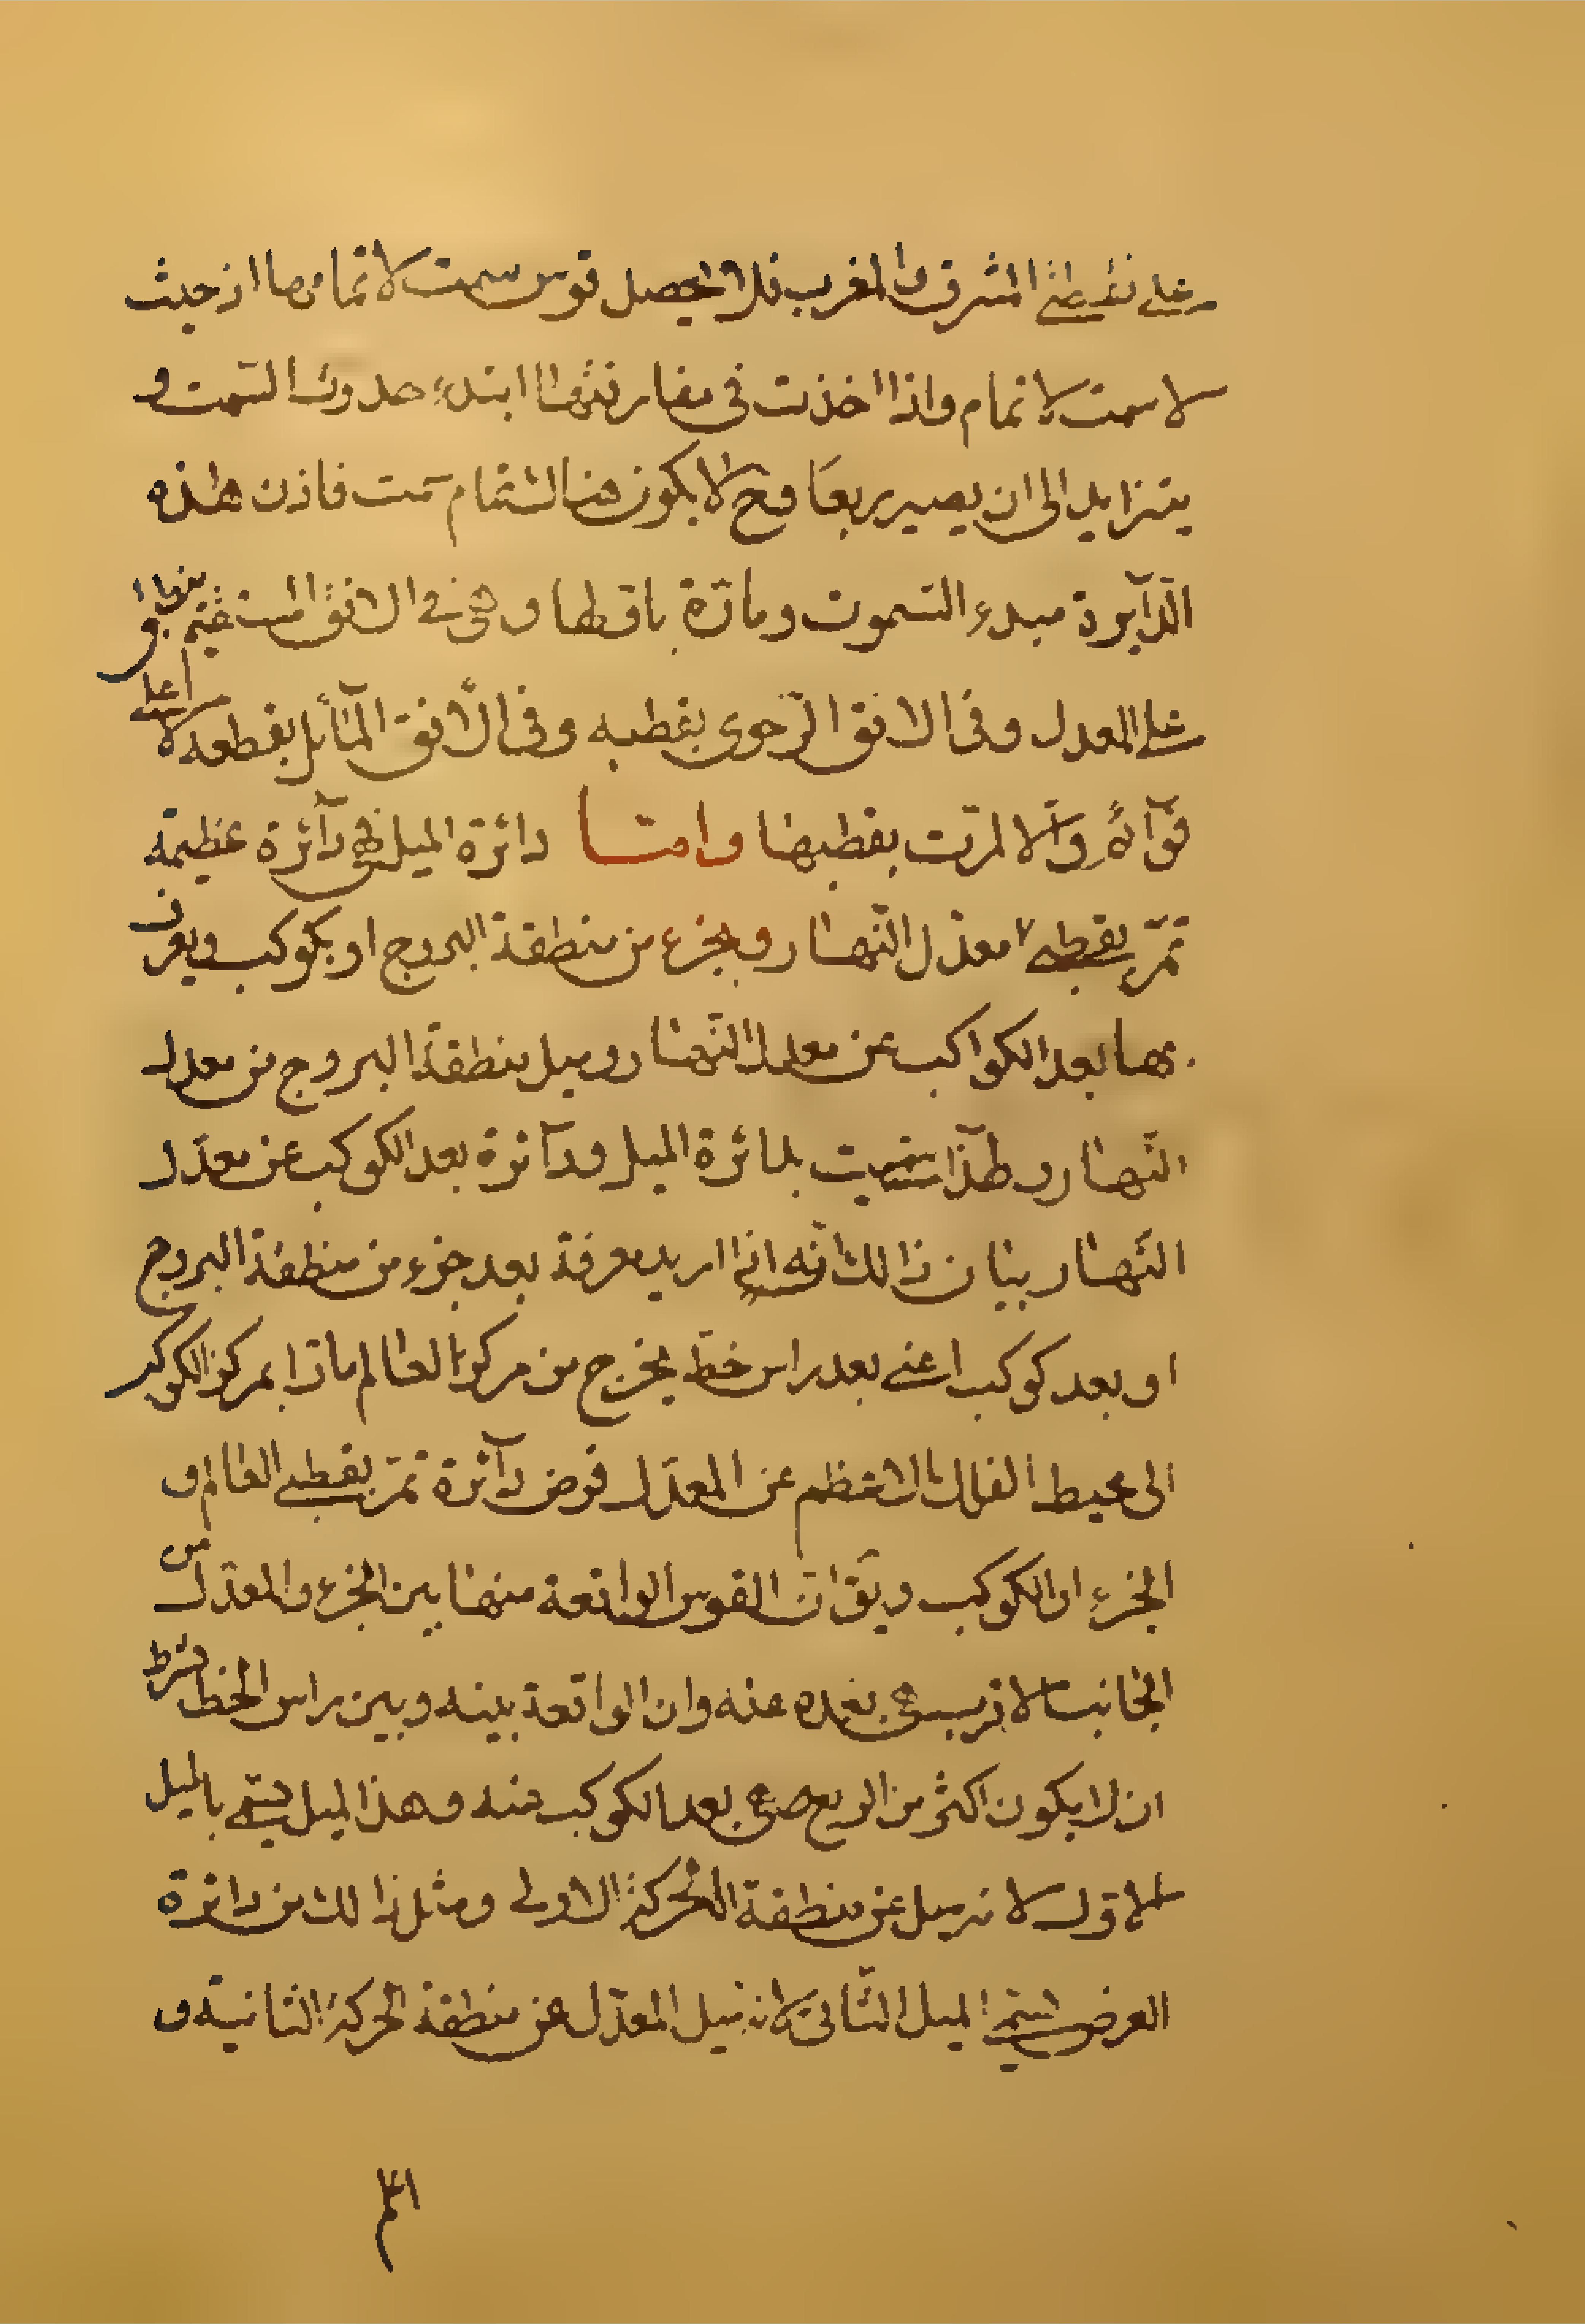 على نقطتي المشرق والمغرب فلا يحصل قوس سمت لا تمامها اذ حيث
لا سمت لا تمام واذا اخذت في مفارقتهما ابتدء حدوث السمت و
يتزايد الى ان يصير ربعا وح لا يكون هناك تمام سمت فاذن هذه
الدآيرة مبدء السموت ومارة باقطابها وهي في الافق المستقيم ينطبق
على المعدل وفي الافق الرحوى بقطبه وفي الافق المآئل يقطعه لا على
قوآئم والا لمرت بقطبها واما دائرة الميل فهي دآئرة عظيمة
تمر بقطبي معدل النهار وبجزء من منطقة البروج او بكوكب ويعرف
بها بعد الكواكب عن معدل النهار وميل منطقة البروج من معدل
النهار ولهذا سميت بدائرة الميل ودآئرة بعد الكوكب عن معدل
النهار بيان ذالك انه اذا اريد معرفة بعد جزء من منطقة البروج
او بعد كوكب اعني بعد راس خط يخرج من مركز العالم مارا بمركز الكوكب
الى محيط الفلك الاعظم عن المعدل فرض دآئرة تمر بقطبي العالم و
الجزء او الكوكب ويق ان القوس الواقعة منها بين الجزء والمعدل من
الجانب الاقرب هي بعده عنه وان الواقعة بينه وبين راس الخط بشرط
ان لا يكون اكثر من الربع هي بعد الكوكب عنه وهذا الميل يسمى بالميل
الاول لانه ميل عن منطقة الحركة الاولى ومثل ذالك من دائرة
العرض يسمى الميل الثاني لانه ميل المعدل عن منطقة الحركة الثانية و